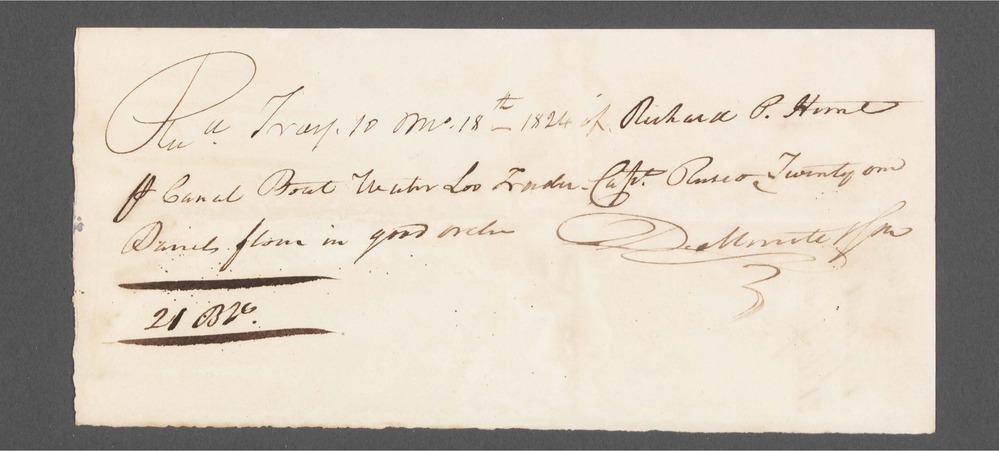 Recd. Troy. 10 Mo. 18th 1824 of Richard P. Hunt
p Canal Boat Water Loo Trader Capt. Rusco Twenty one
Barrels flour in good order
21 Bls.